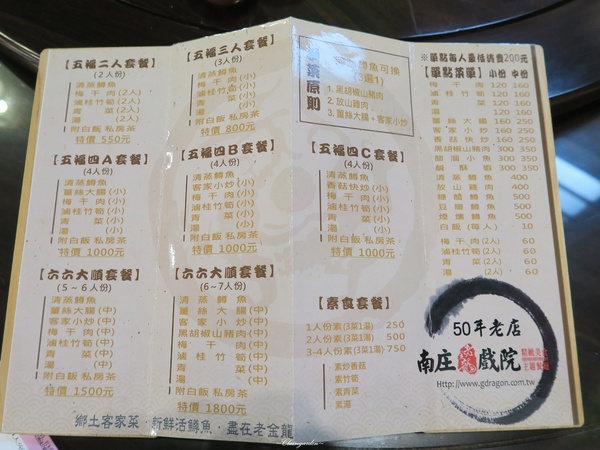 【五福二人套餐】
(2人份)
清蒸鱒魚
梅干肉(2人)
滷桂竹筍(2人)
青菜(2人)
湯(2人)
附白飯 私房茶
特價 550元
【五福三人套餐】
(3人份)
清蒸鱒魚
梅干肉(小)
滷桂竹筍(小)
青菜(小)
湯(小)
附白飯 私房茶
特價 800元
原則
魚可換
1.黑胡椒山豬肉
2.放山雞肉
3.薑絲大腸+客家小炒
【五福四A套餐】
(4人份)
清蒸鱒魚
薑絲大腸(小)
梅干肉(小)
滷桂竹筍(小)
青菜(小)
湯(小)
附白飯 私房茶
特價 1000元
【五福四B套餐】
(4人份)
清蒸鱒魚
客家小炒(小)
梅干肉(小)
滷桂竹筍(小)
青菜(小)
湯(小)
附白飯 私房茶
特價 1000元
【五福四C套餐】
(4人份)
清蒸鱒魚
香菇快炒(小)
梅干肉(小)
滷桂竹筍(小)
青菜(小)
湯(小)
附白飯 私房茶
特價 1000元
【六六大順套餐】
(5~6人份)
清蒸鱒魚
薑絲大腸(中)
客家小炒(中)
梅干肉(中)
滷桂竹筍(中)
青菜(中)
湯(中)
附白飯 私房茶
特價 1500元
【六六大順套餐】
(6~7人份)
清蒸鱒魚
薑絲大腸(中)
客家小炒(中)
黑胡椒山豬肉(中)
梅干肉(中)
滷桂竹筍(中)
青菜(中)
湯(中)
附白飯 私房茶
特價 1800元
【素食套餐】
1人份素(3菜1湯) 250
2人份素(3菜1湯) 500
3-4人份素(3菜1湯) 750
素炒香菇
素竹筍
素青菜
素湯
※單點每人最低消費200元
【單點菜單】小份 中份
梅干肉 120 160
滷桂竹筍 120 160
青菜 120 160
湯 120 160
薑絲大腸 160 250
客家小炒 160 250
香菇快炒 160 250
黑胡椒山豬肉 300 350
醋溜小魚 300 350
鹹酥蝦 300 350
清蒸鱒魚 400
放山雞肉 400
糖醋鱒魚 500
豆瓣鱒魚 500
煙燻鱒魚 500
白飯(每人) 10
梅干肉(2人) 60
滷桂竹筍(2人) 60
青菜(2人) 60
湯(2人) 60
50年老店
南庄 戲院
Http://www.gdragon.com.tw
鄉土客家菜·新鮮活鱒魚·盡在老金龍